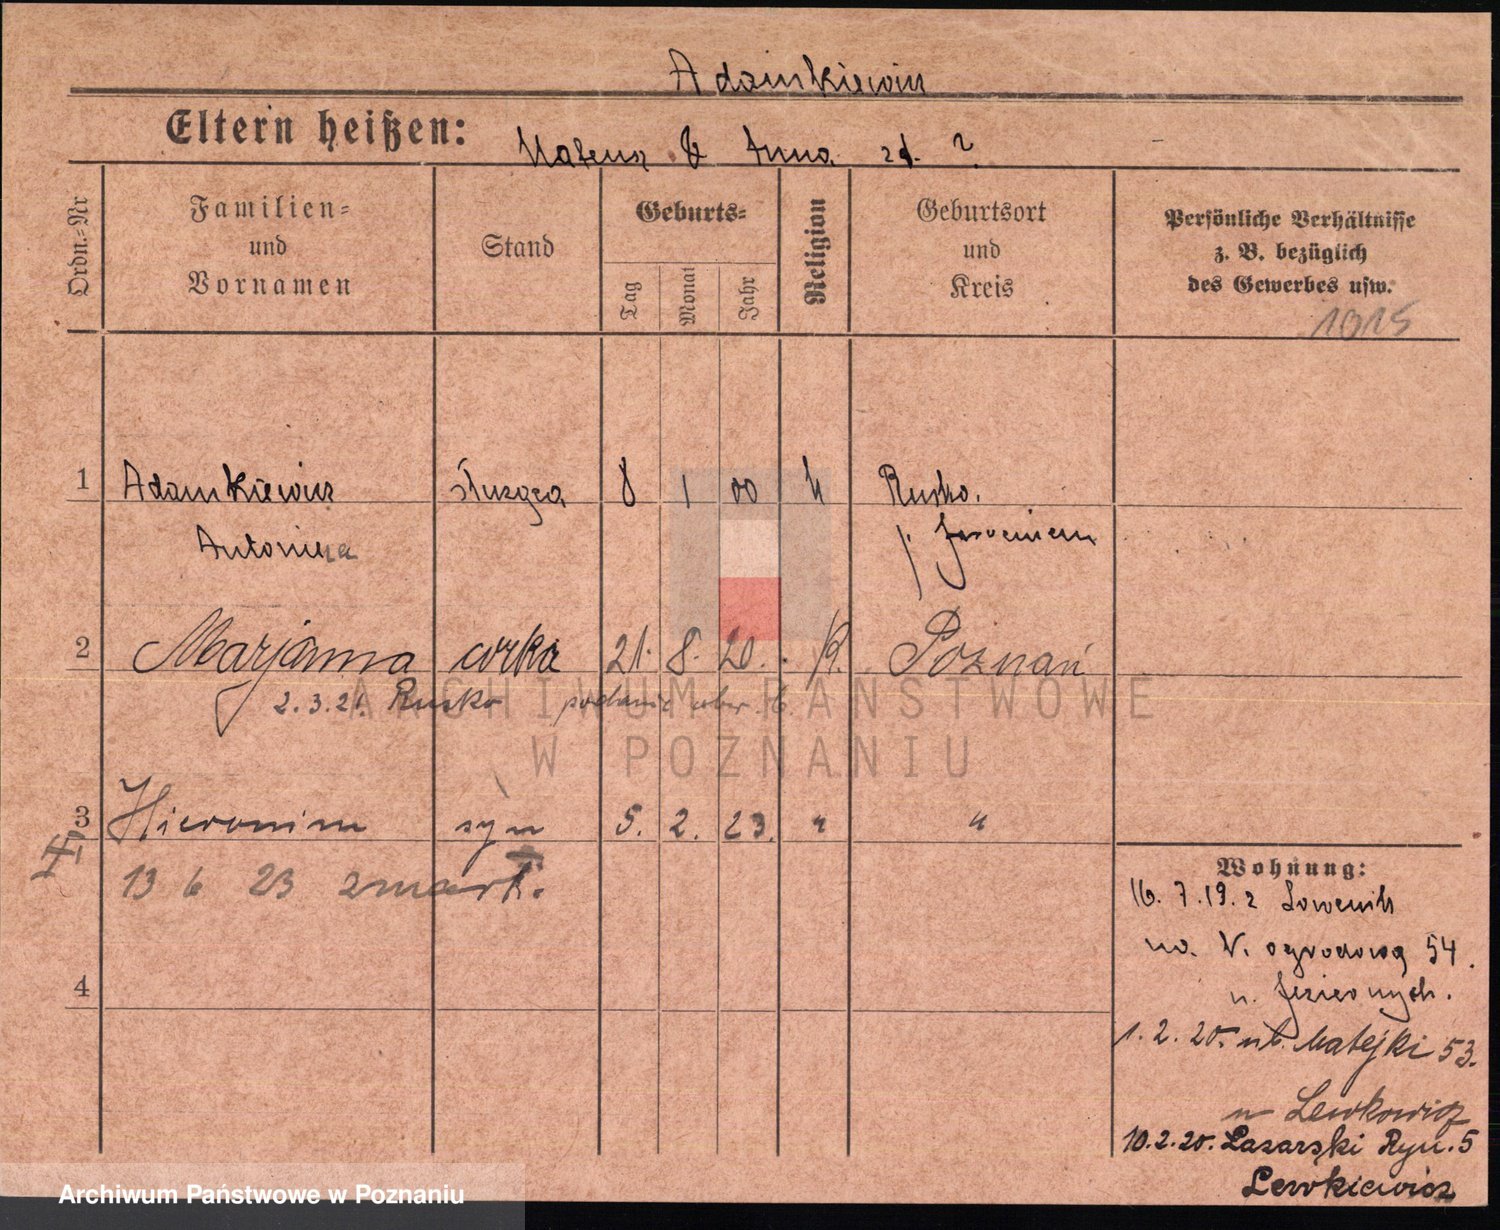 Adamkiewicz
Eltern heißen: Mateusz & Anna zd. ?
Ordn.=Nr
Familien= und Vornamen
Stand
Geburts=
Tag
Monat
Jahr
Religion
Geburtsort und Kreis
Persönliche Verhältnisse
z. B. bezüglich
des Gewerbes usw.
1915
1 Adamkiewicz służąca 8 1 00 k Rusko.
Antonina p. Jarocin
2 Marjanna córka 21. 8. 20. K. Poznań
2.3.21. Rusko podanie
3 Hieronim syn 5. 2. 23. " "
13 6 23 zmarł.
4
Wohnung:
16. 7. 19. z
na W. ogrodową 54.
u. Jeziernych.
1. 2. 20. ul. Matejki 53.
u Lewkowicz
10.2.20. Łazarski Ryn. 5
Lewkiewicz
ARCHIWUM PAŃSTWOWE
W POZNANIU
Archiwum Państwowe w Poznaniu